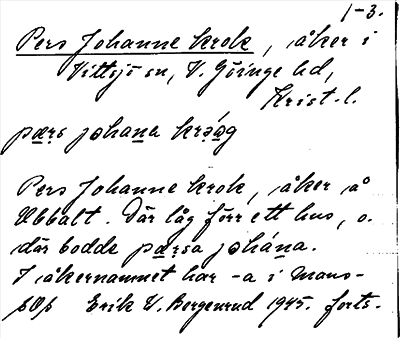 1-3.
Pers Johanne krok, åker i
Vittsjö sn, V. Göinge hd,
Krist. l.
pærs johana kråg
Pers Johanne krok, åker å
Ubbalt. Där låg förr ett hus, o.
där bodde pærsa johána.
I åkernamnet har -a i Mans-
Erik W. Bergenrud 1945. forts.